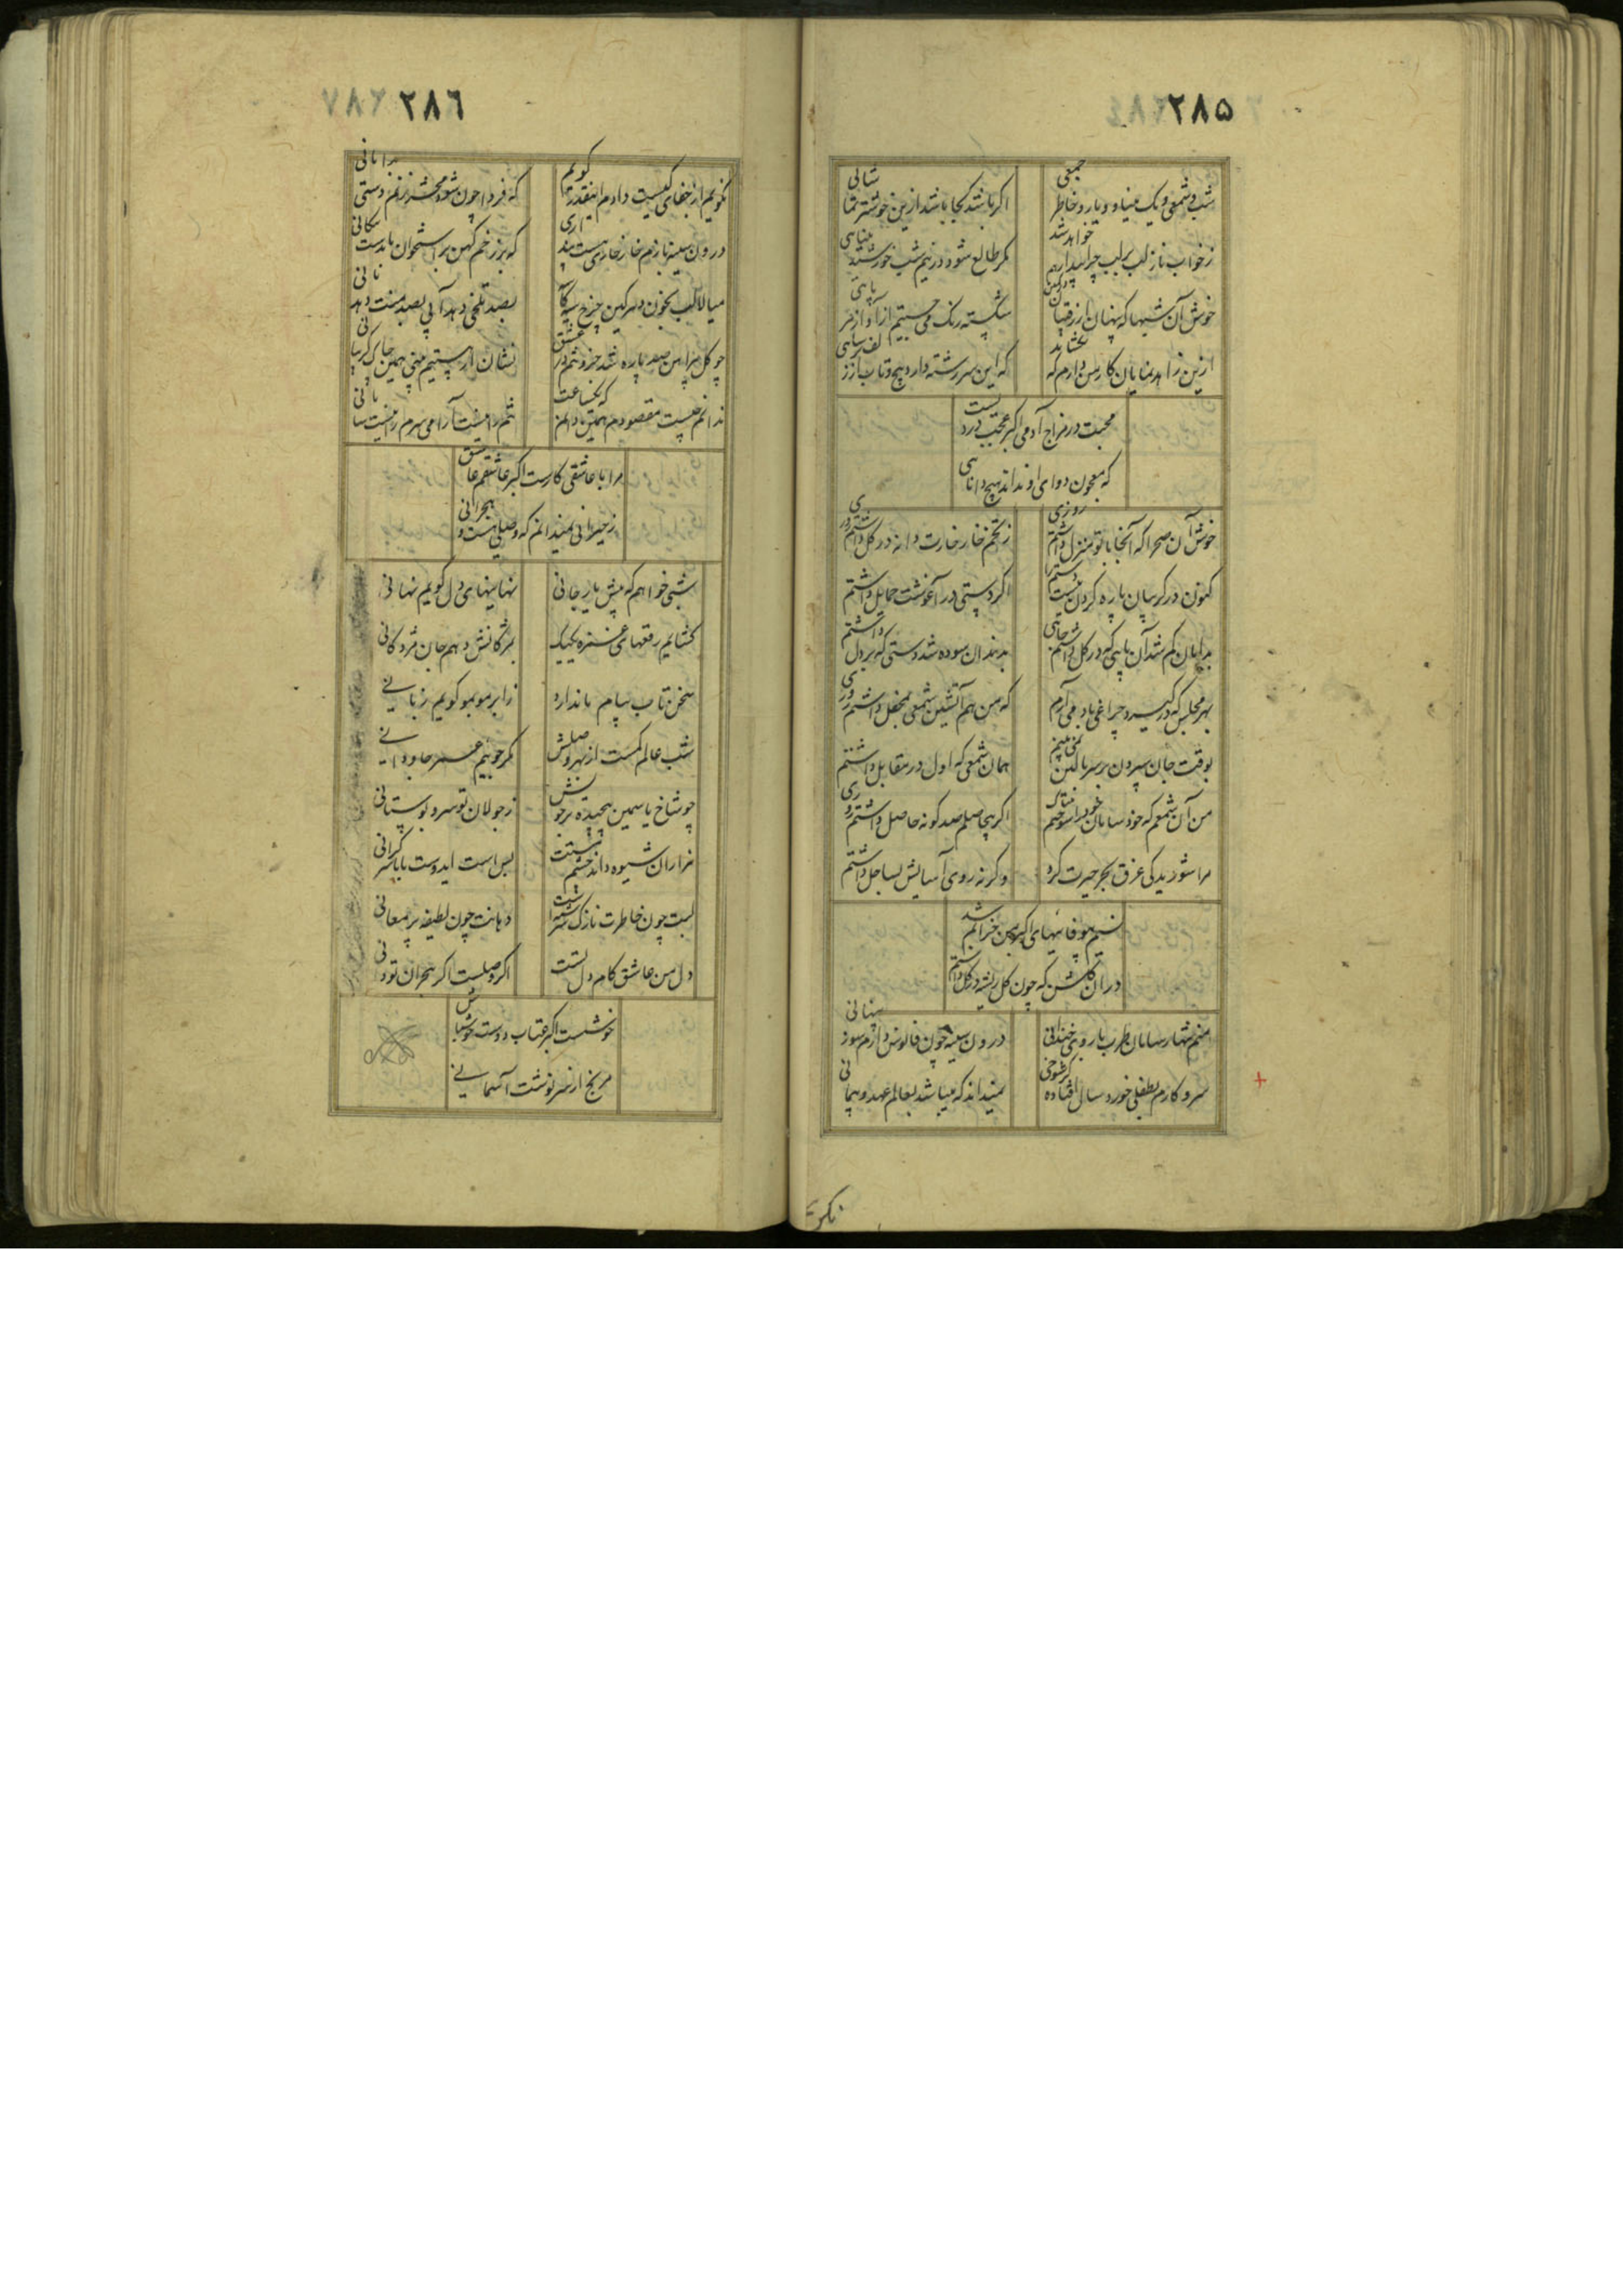 ۲۸۵
شب و شمعی و یک مینا و دو یار و خاطر جمعی
اگر باشد کجا باشد ازین خوشتر تماشائی
ز خواب ناز لب بر لب چرا بیدار خواهد شد
مگر طالع شود در نیم شب خورشید
خوش آن شبها که پنهان از رقیبان
شکسته رنگ می جستیم از آواز هر پائی
ازین زاهد نمایان کار من دارم که
که این سررشته دارد پیچ و تاب از زلف
محبت در مزاج آدمی اکبر عجب دردیست
که معجون دوای او نداند هیچ دانائی
خوش آن صحرا که آنجا با تو منزل داشتم روزی
ز تخم خار خارت دانه در گل داشتم روزی
کنون در گریبان پاره کردن نیست دستم را
اگر دستی در آغوشت حمایل داشتم
بدندان سوده شد دستی که بر دل داشتم
بهر مجلس که در گیرد چراغی یاد می آرم
که من هم آتشین شمعی بمحفل داشتم روزی
بوقت جان سپردن بر سر بالین نمی بینم
همان شمعی که اول در مقابل داشتم
من آن شمعم که خود سامان خود را سوختم
اگر بیحاصلم صد گونه حاصل داشتم روزی
مرا شوریدگی غرق بحر حیرت کرد
وگرنه روی آسایش بساحل داشتم
نسیم بیوفائیهای اکبر
در آن گلشن که چون گل ریشه در گل داشتم
منم تنها ز سامان طرب با روی خندانی
درون سینه چون فانوس دارم سوز پنهانی
سر و کارم بطفلی خورد سال افتاده
نمیداند که میباشد بعالم عهد و پیمانی
نگویم
۲۸۶
نگویم از جفای کیست دادم اینقدر گویم
که فردا چون شود محشر زنم دستی بدامانی
درون سینه بازم خار خاری هست پنداری
که بر زخم کهن بر استخوان
میالا لب بخون دهر کین چرخ سیه کاسه
بصد تلخی دهد آبی بصد منت دهد نانی
چو گل پیراهن صد پاره شد جزو تنم در عشق
نشان از هستیم همین چاک گریبانی
ندانم چیست مقصودم همین دانم که یکساعت
نه دل را هست آرامی سرم را نیست سامانی
مرا با عاشقی کارست اکبر عاشقم عاشق
ز حیرانی نمیدانم که وصلی هست و هجرانی
شبی خواهم که پیش یار جانی
نهانیهای دل گویم نهانی
گشایم رقعهای غنچه یکیک
بمژگانش دهم جان مژدگانی
سخن تاب پیام ما ندارد
زابر مو بمو گویم زبانی
شب عالم کمست از بهر وصلش
مگر جوئیم عمر جاودانی
چو شاخ یاسمین پیچیده
ز جولان تو سرو بوستانی
هزاران شیوه داند چشم مستت
بس است ایدوست با ما سر گرانی
لبت چون خاطرت نازک سرشت
دهانت چون لطیفه پر معانی
دل من عاشق کام دل تست
اگر وصلست اگر هجران تو دانی
خوشست اکبر عتاب دوست خوش باش
مرنج از سرنوشت آسمانی